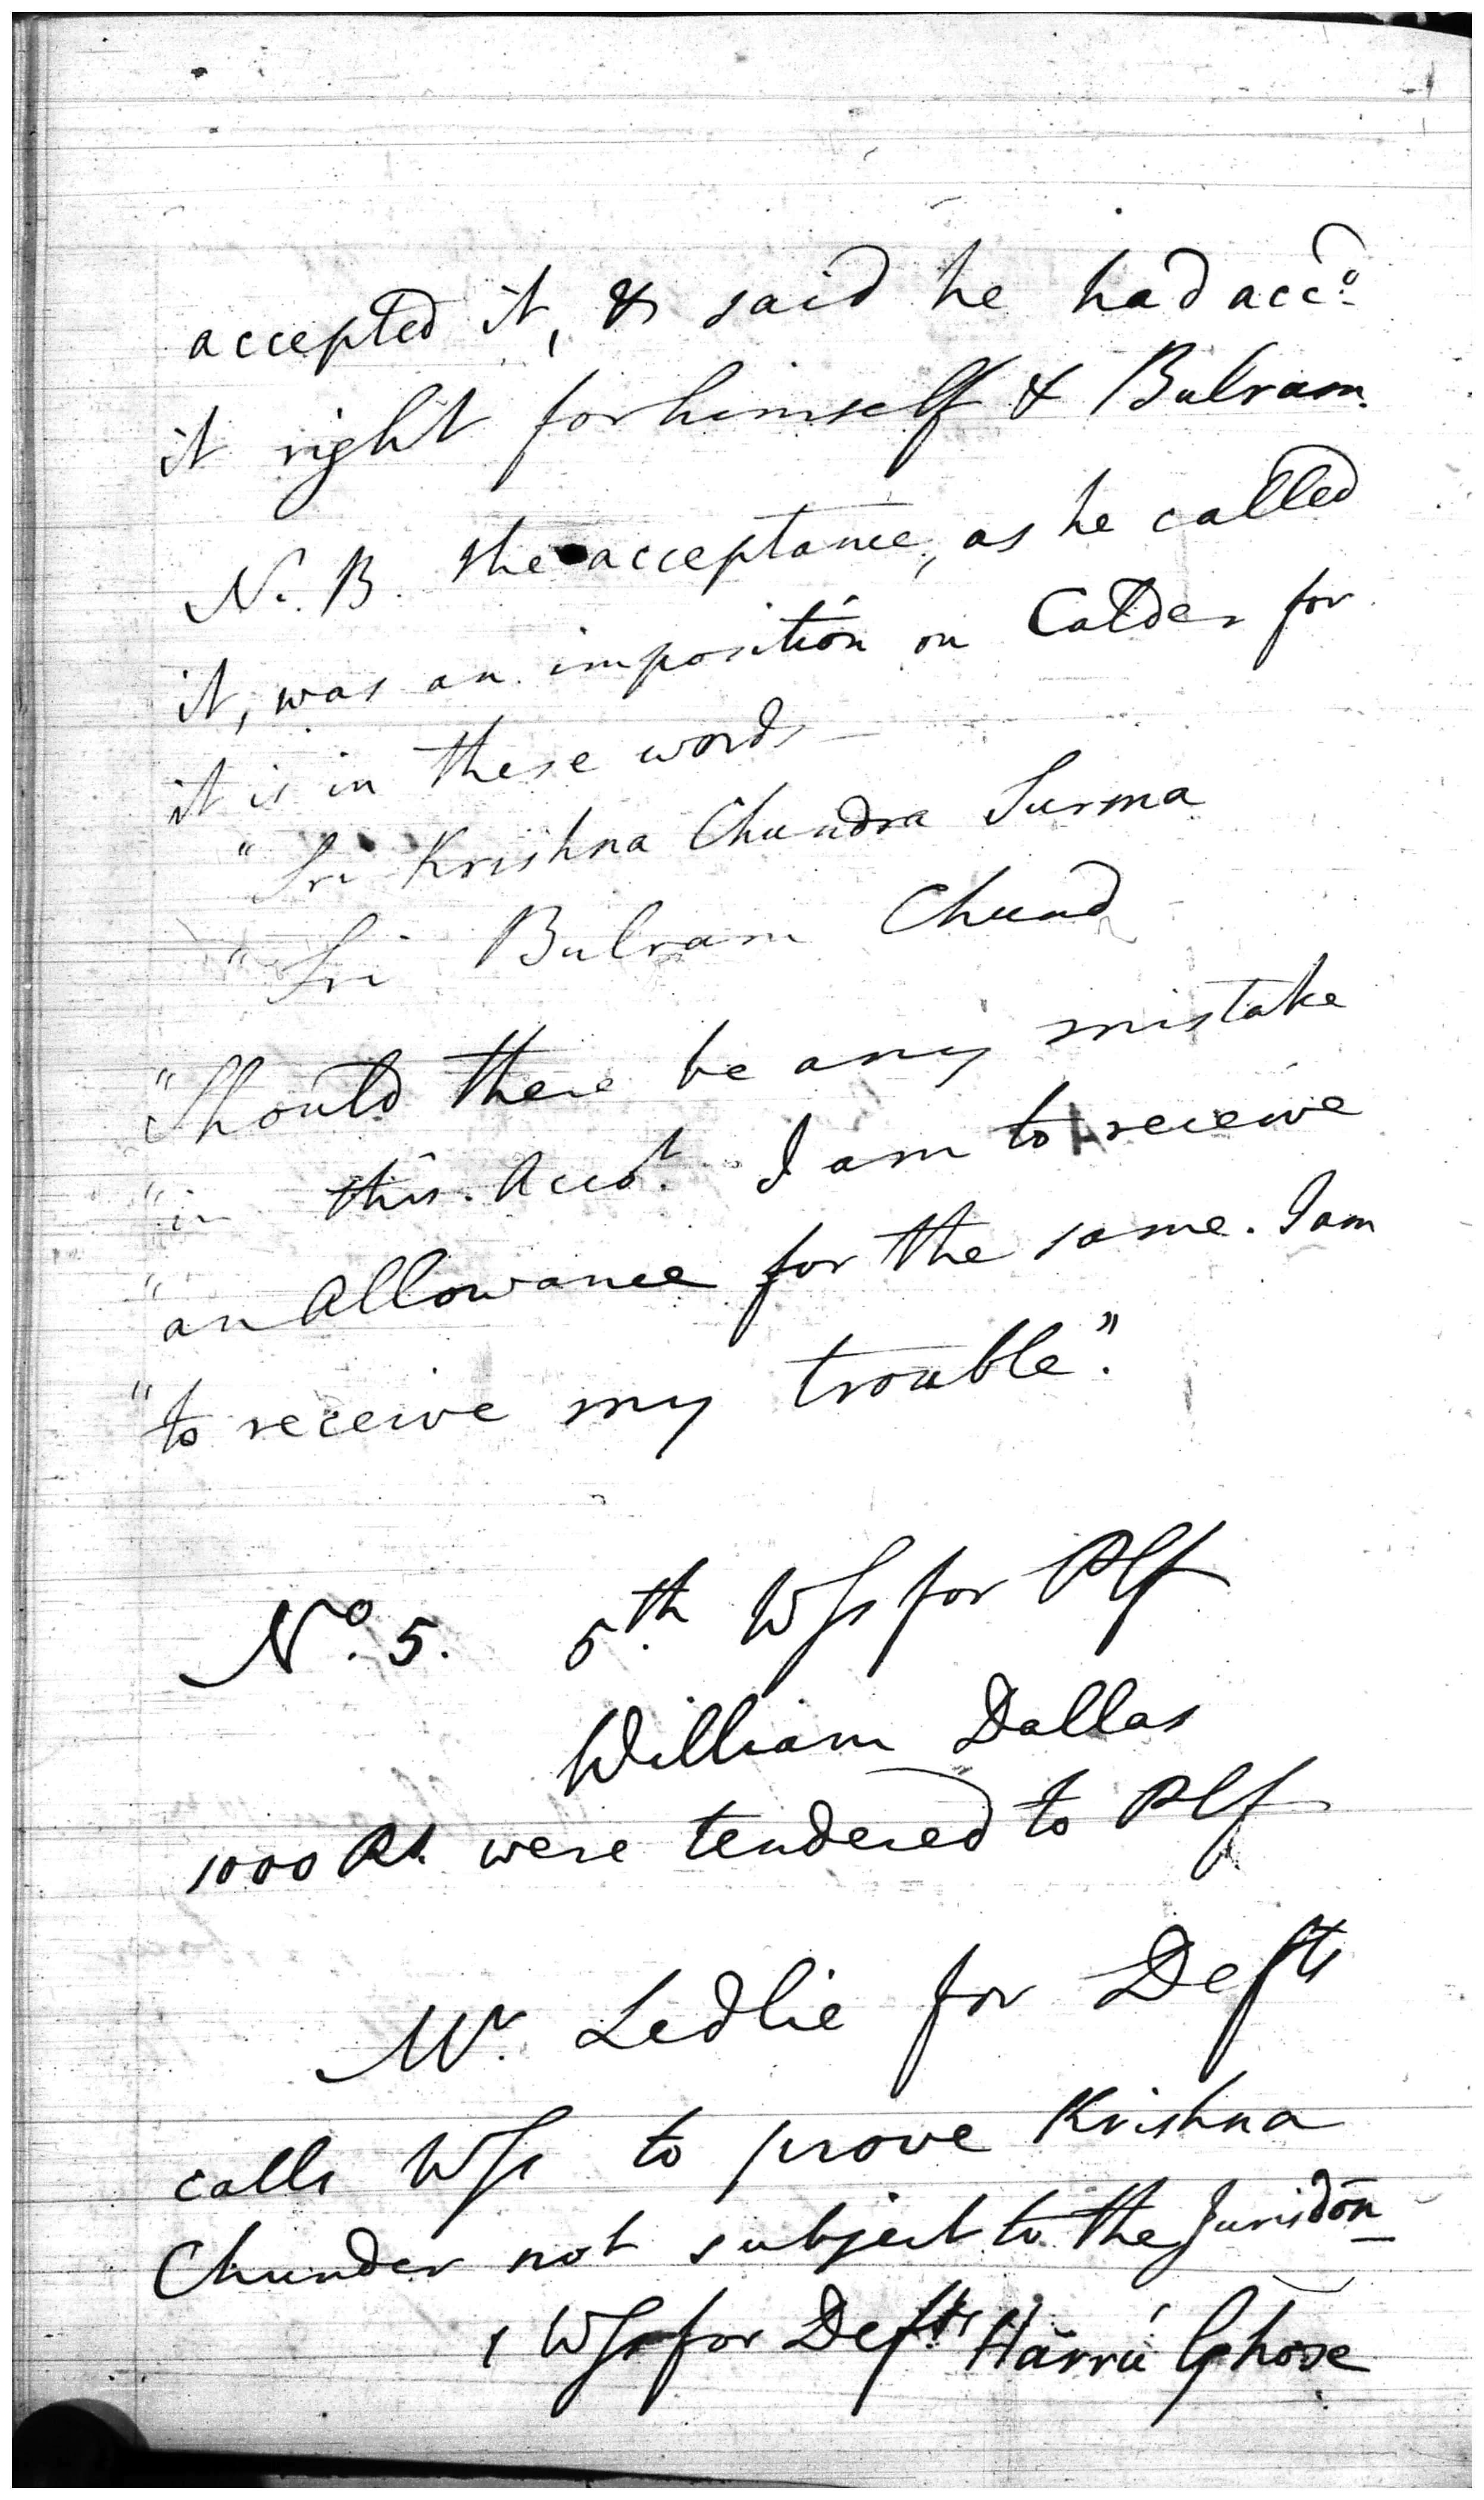 accepted it, & said he had accd.
it right for himself & Bulram.
N. B. the acceptance, as he called
it, was an imposition on Calder for
it is in these words —
"Sri Krishna Chundra Surma
"Sri Bulram Chund
"Should there be any mistake
"in this Acct. I am to receive
"an Allowance for the same. I am
"to receive my trouble."
No. 5. 5th. Wss for Plf
William Dallas
1000 Rs. were tendered to Plf
Mr. Ledlie for Defts
calls Wss to prove Krishna
Chunder not subject to the Jurisdon
1 Wss for Defts Harru Ghose